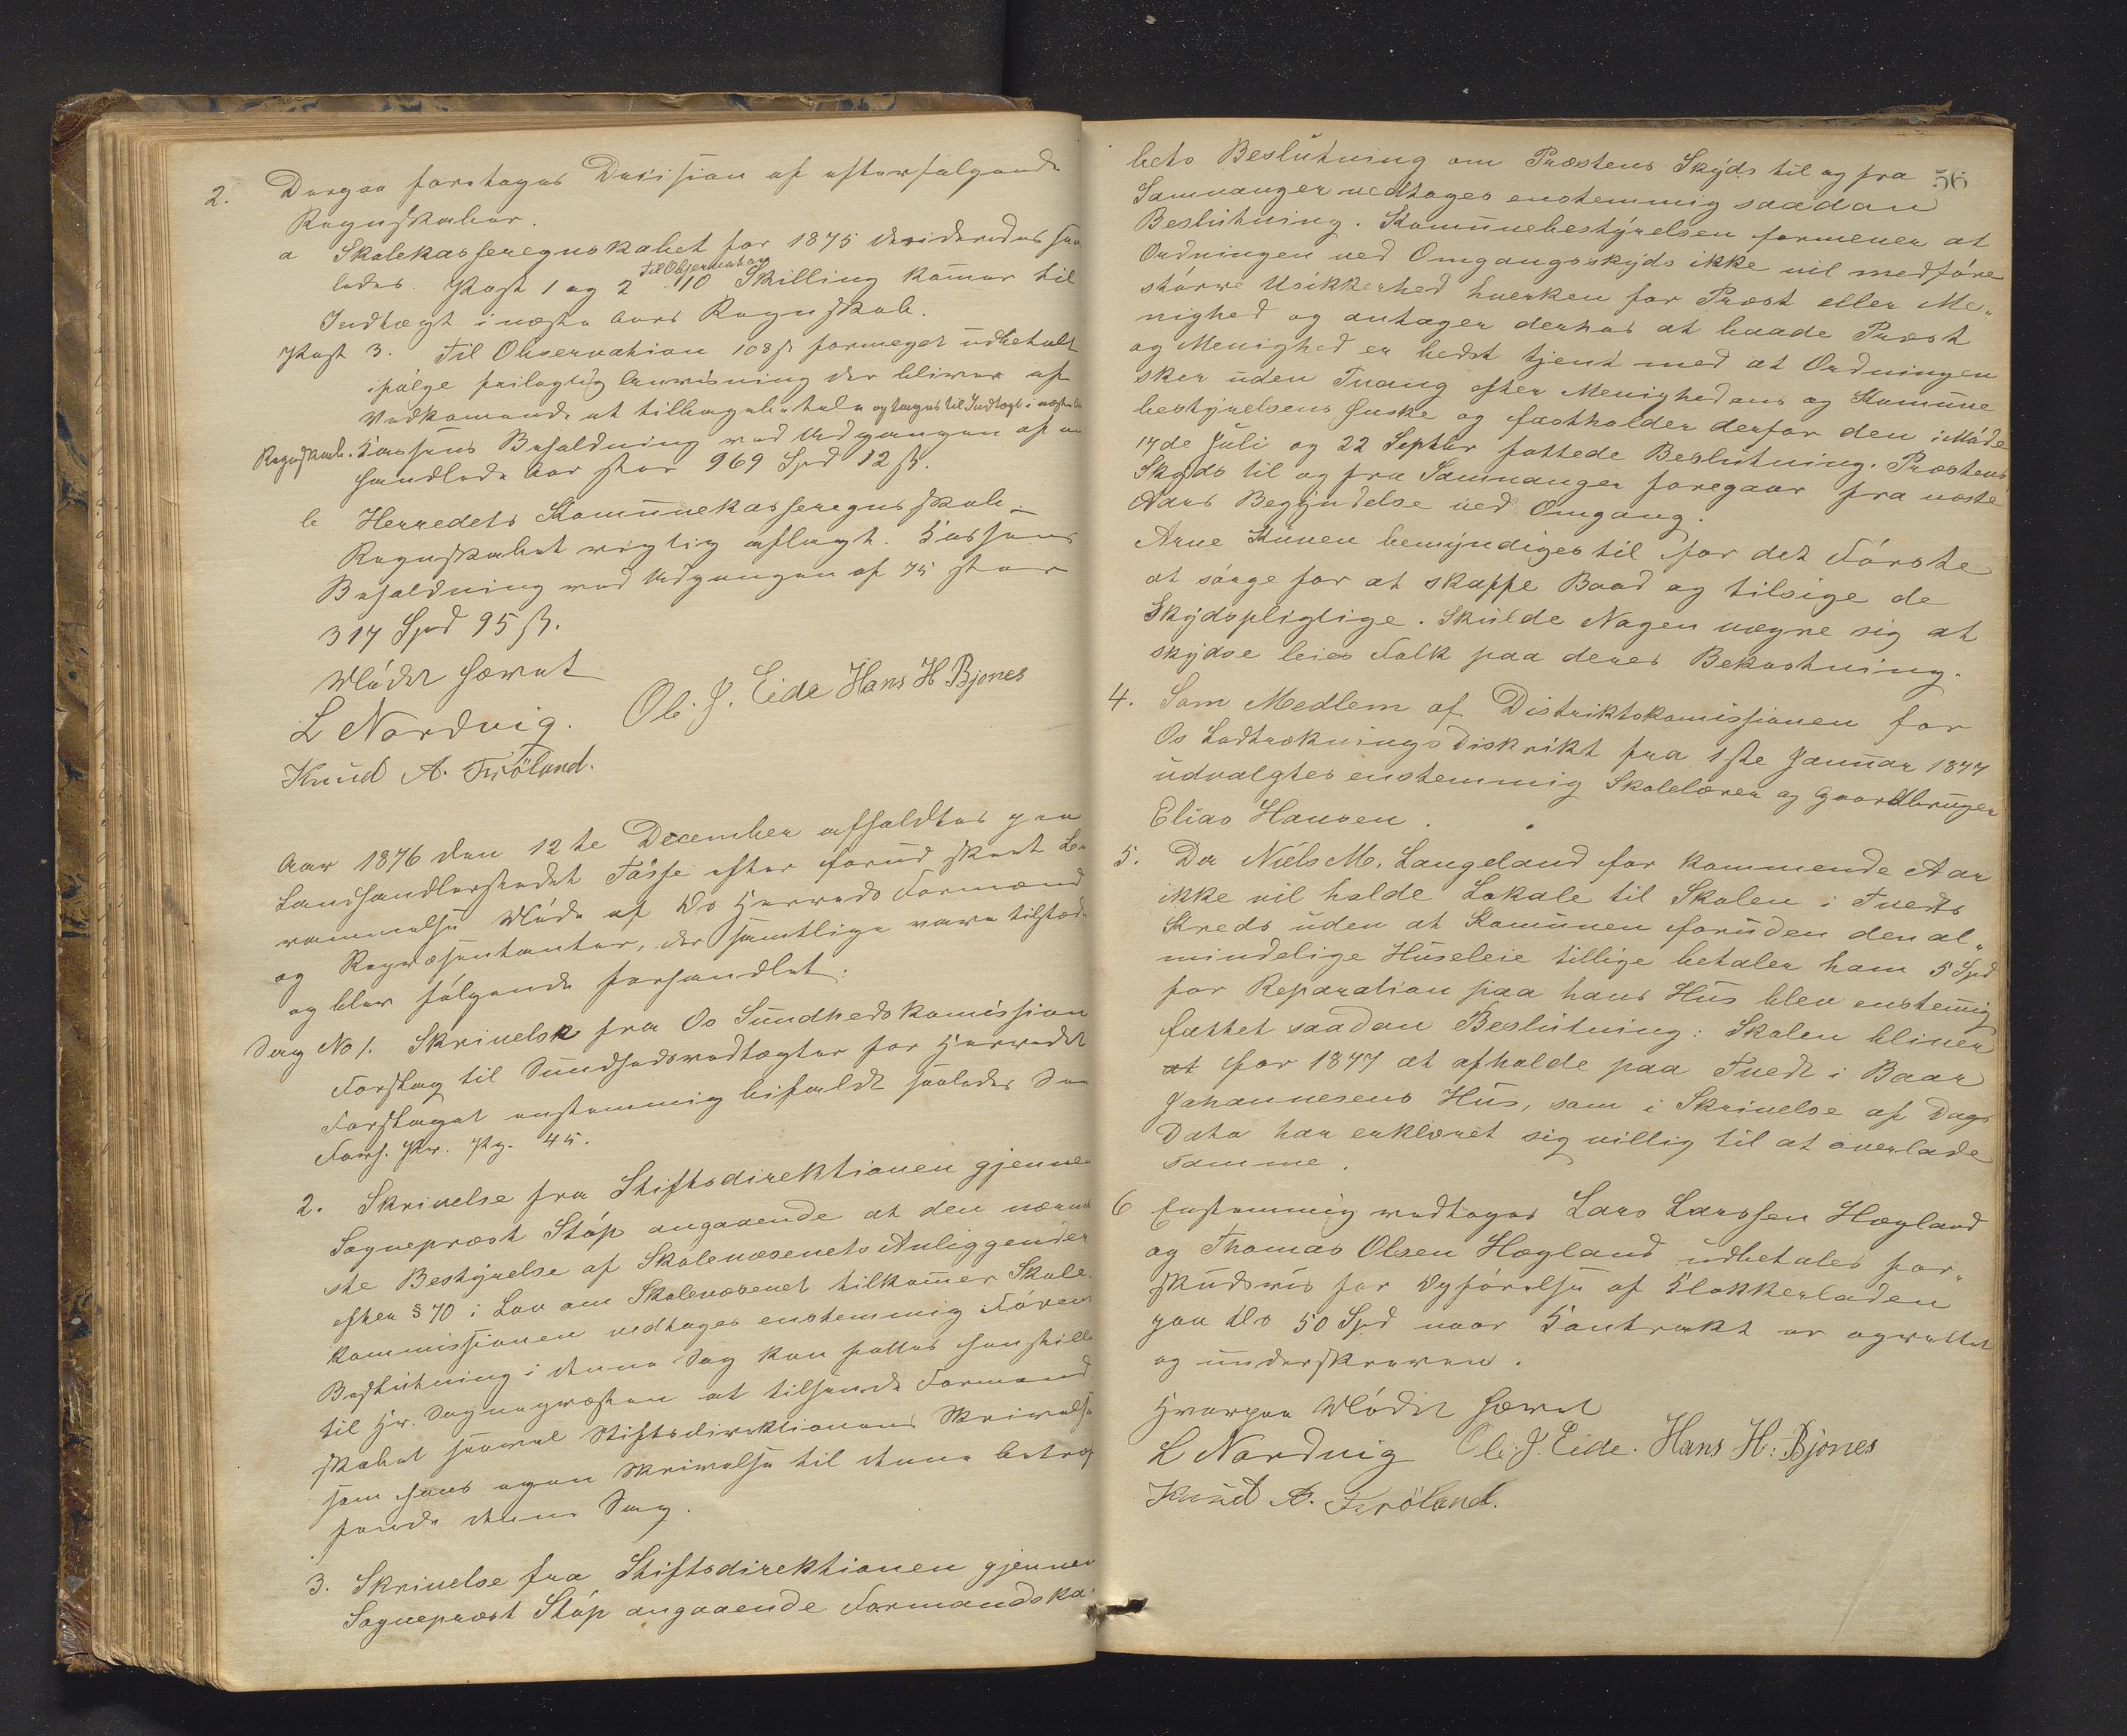 2. Dergaa foretoges Decision af efterfølgende
Regnskaber.
a Skolekasseregnskabet for 1875 desideredes saa
ledes. Post 1 og 2 Til Observation 110 Skilling komer til
Indtægt i næste Aars Regnskab.
Post 3. Til Observation 108 ß formeget udbetalt
ifølge feilagtig Anvisning der bliver af
Vedkomende at tilbagebetale og tages til Indtægt i næste Aa
Regnskab. Kassens Beholdning ved Udgangen af om
handlede Aar stor 969 Spd 12 ß.
b Herredets Komunekasseregnskab.
Regnskabet rigtig aflagt. Kassens
Beholdning ved Udgangen af 75 stor
317 Spd 95 ß.
Mødet hævet
L Nordvig. Ole J. Eide Hans H Bjones
Knud A. Fröland.
Aar 1876 den 12te December afholdtes paa
Landhandlerstedet Tösse efter forud skeet Be
rammelse Møde af Os Herreds Formænd
og Repræsentanter, der samtlige vare tilstæde
og blev følgende forhandlet:
Sag No 1. Skrivelse fra Os Sundhedskomission
Forslag til Sundhedsvedtægter for Herredet
Forslaget enstemmig bifaldt saaledes Se
Forh. Pr. Pg. 45.
2. Skrivelse fra Stiftsdirektionen gjennem
Sogneprest Støp angaaende at den nærme
ste Bestyrelse af Skolevæsenets Anliggender
efter § 70 i Lov om Skolevæsenet tilkomer Skole
kommissionen vedtages enstemmig Føren
Beslutning i denne Sag kan fattes henstille
til Hr. Sognepræsten at tilsende Formand
skabet saavel Stiftsdirektionens Skrivelse
som hans egen Skrivelse til denne betræf
fende denne Sag.
3. Skrivelse fra Stiftsdirektionen gjennem
Sogneprest Støp angaaende Formandska
56
bets Beslutning om Præstens Skyds til og fra
Samnanger vedtoges enstemmig saadan
Beslutning. Komunebestyrelsen formener at
Ordningen ved Omgangsskyds ikke vil medføre
større Usikkerhed hverken for Præst eller Me„
nighed og antager derhos at baade Præst
og Menighed er bedst tjent med at Ordningen
sker uden Tvang efter Menighedens og Komune
bestyrelsens Ønske og fastholder derfor den i Møde
17de Juli og 22 Septbr fattede Beslutning. Præstens
Skyds til og fra Samnanger foregaar fra næste
Aars Begyndelse ved Omgang.
Arne Kuven bemyndiges til for det Første
at sørge for at skaffe Baad og tilsige de
Skydspligtige. Skulde Nogen vægre sig at
skydse leies Folk paa deres Bekostning.
4. Som Medlem af Distriktskomissionen for
Os Lodtrækningsdiskrikt fra 1ste Januar 1877
udvalgtes enstemmig Skolelærer og Gaardbruger
Elias Hansen.
5. Da Niels M. Langeland for kommende Aar
ikke vil holde Lokale til Skolen i Tvedts
Kreds uden at Komunen foruden den al„
mindelige Huseleie tillige betaler ham 5 Spd
for Reparation paa hans Hus blev enstemig
fattet saadan Beslutning: Skolen bliver
at for 1877 at afholde paa Tvedt i Baar
Johannesens Hus, som i Skrivelse af Dags
Dato har erklæret sig villig til at overlade
samme.
6 Enstemmig vedtoges Lars Larssen Hegland
og Thomas Olsen Hegland udbetales for„
skudsvis for Opførelse af Klokkerladen
paa Os 50 Spd naar Kontrakt er oprettet
og underskreven.
Hvorpaa Mødet hævet
L Nordvig Ole J. Eide. Hans H: Bjones
Knud A. Fröland.